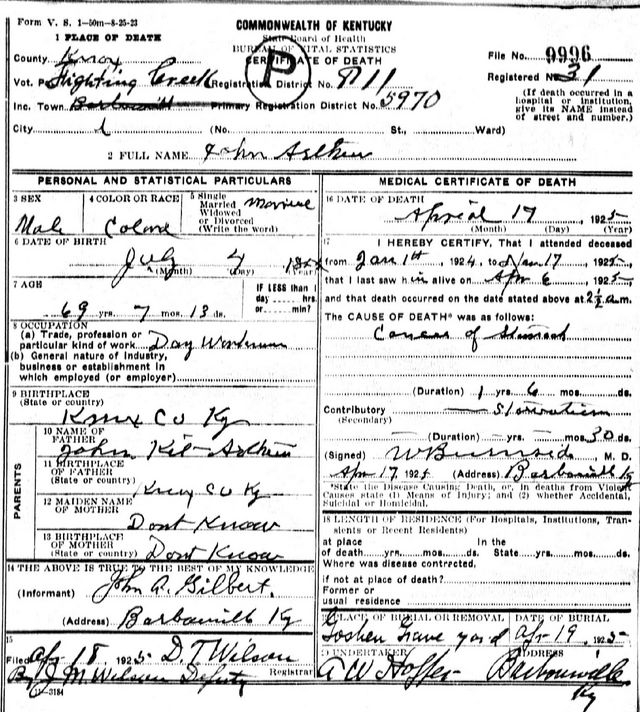 Form V. S. 1—50m—8-25-23
COMMONWEALTH OF KENTUCKY
State Board of Health
BUREAU OF VITAL STATISTICS
CERTIFICATE OF DEATH
P
1 PLACE OF DEATH
County Knox
File No. 9996
Vot. P Fighting Creek Registration District No. 711
Registered No. 31
Inc. Town Primary Registration District No. 5970
(If death occurred in a hospital or institution, give its NAME instead of street and number.)
City (No. St., Ward)
2 FULL NAME John
PERSONAL AND STATISTICAL PARTICULARS
3 SEX
Male
4 COLOR OR RACE
Colord
5 Single
Married
Widowed
or Divorced
(Write the word)
Married
6 DATE OF BIRTH
July 4
(Month) (Day)
7 AGE
69 yrs. 7 mos. 13 ds.
IF LESS than 1
day hrs.
or min?
8 OCCUPATION
(a) Trade, profession or
particular kind of work Day Workman
(b) General nature of industry,
business or establishment in
which employed (or employer)
9 BIRTHPLACE
(State or country)
Knox Co Ky
PARENTS
10 NAME OF
FATHER
John Kit
11 BIRTHPLACE
OF FATHER
(State or country)
Knox Co Ky
12 MAIDEN NAME
OF MOTHER
Dont Know
13 BIRTHPLACE
OF MOTHER
(State or country)
Dont Know
14 THE ABOVE IS TRUE TO THE BEST OF MY KNOWLEDGE
(Informant) John A. Gilbert.
(Address) Barbourville Ky
15
Filed Apr 18, 1925 D. T. Wilson
Registrar
By J M Wilson Deputy
11-3184
MEDICAL CERTIFICATE OF DEATH
16 DATE OF DEATH
17, 1925
(Month) (Day) (Year)
17
I HEREBY CERTIFY, That I attended deceased
from Jan 1st, 1924, to 17, 1925
that I last saw him alive on Apr 6, 1925
and that death occurred on the date stated above at a.m.
The CAUSE OF DEATH* was as follows:
Cancer of Stomach
(Duration) 1 yrs. 6 mos. ds.
Contributory
(Secondary)
(Duration) yrs. mos. 30 ds.
(Signed) W Burnside, M. D.
Apr 17 1925 (Address) Barbourville Ky
*State the Disease Causing Death, or, in deaths from Violent
Causes state (1) Means of Injury; and (2) whether Accidental,
Suicidal or Homicidal.
18 LENGTH OF RESIDENCE (For Hospitals, Institutions, Tran-
sients or Recent Residents)
at place In the
of death yrs. mos. ds. State yrs. mos. ds.
Where was disease contracted,
if not at place of death?
Former or
usual residence
PLACE OF BURIAL OR REMOVAL
Goshen Grave yard
DATE OF BURIAL
Apr 19, 1925
UNDERTAKER
A W Hopper
ADDRESS
Barbourville
Ky